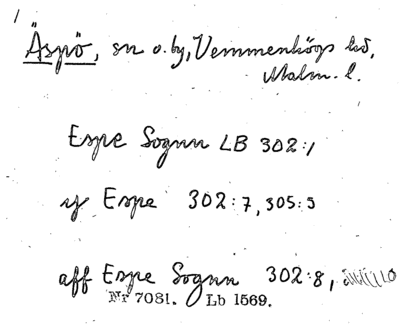 Äspö, sn o. by, Vemmenhögs hd,
Malm. l.
Espe Sognn LB 302:1
y Espe 302:7, 305:5
aff Espe Sognn 302:8,
Nr 7081. Lb 1569.